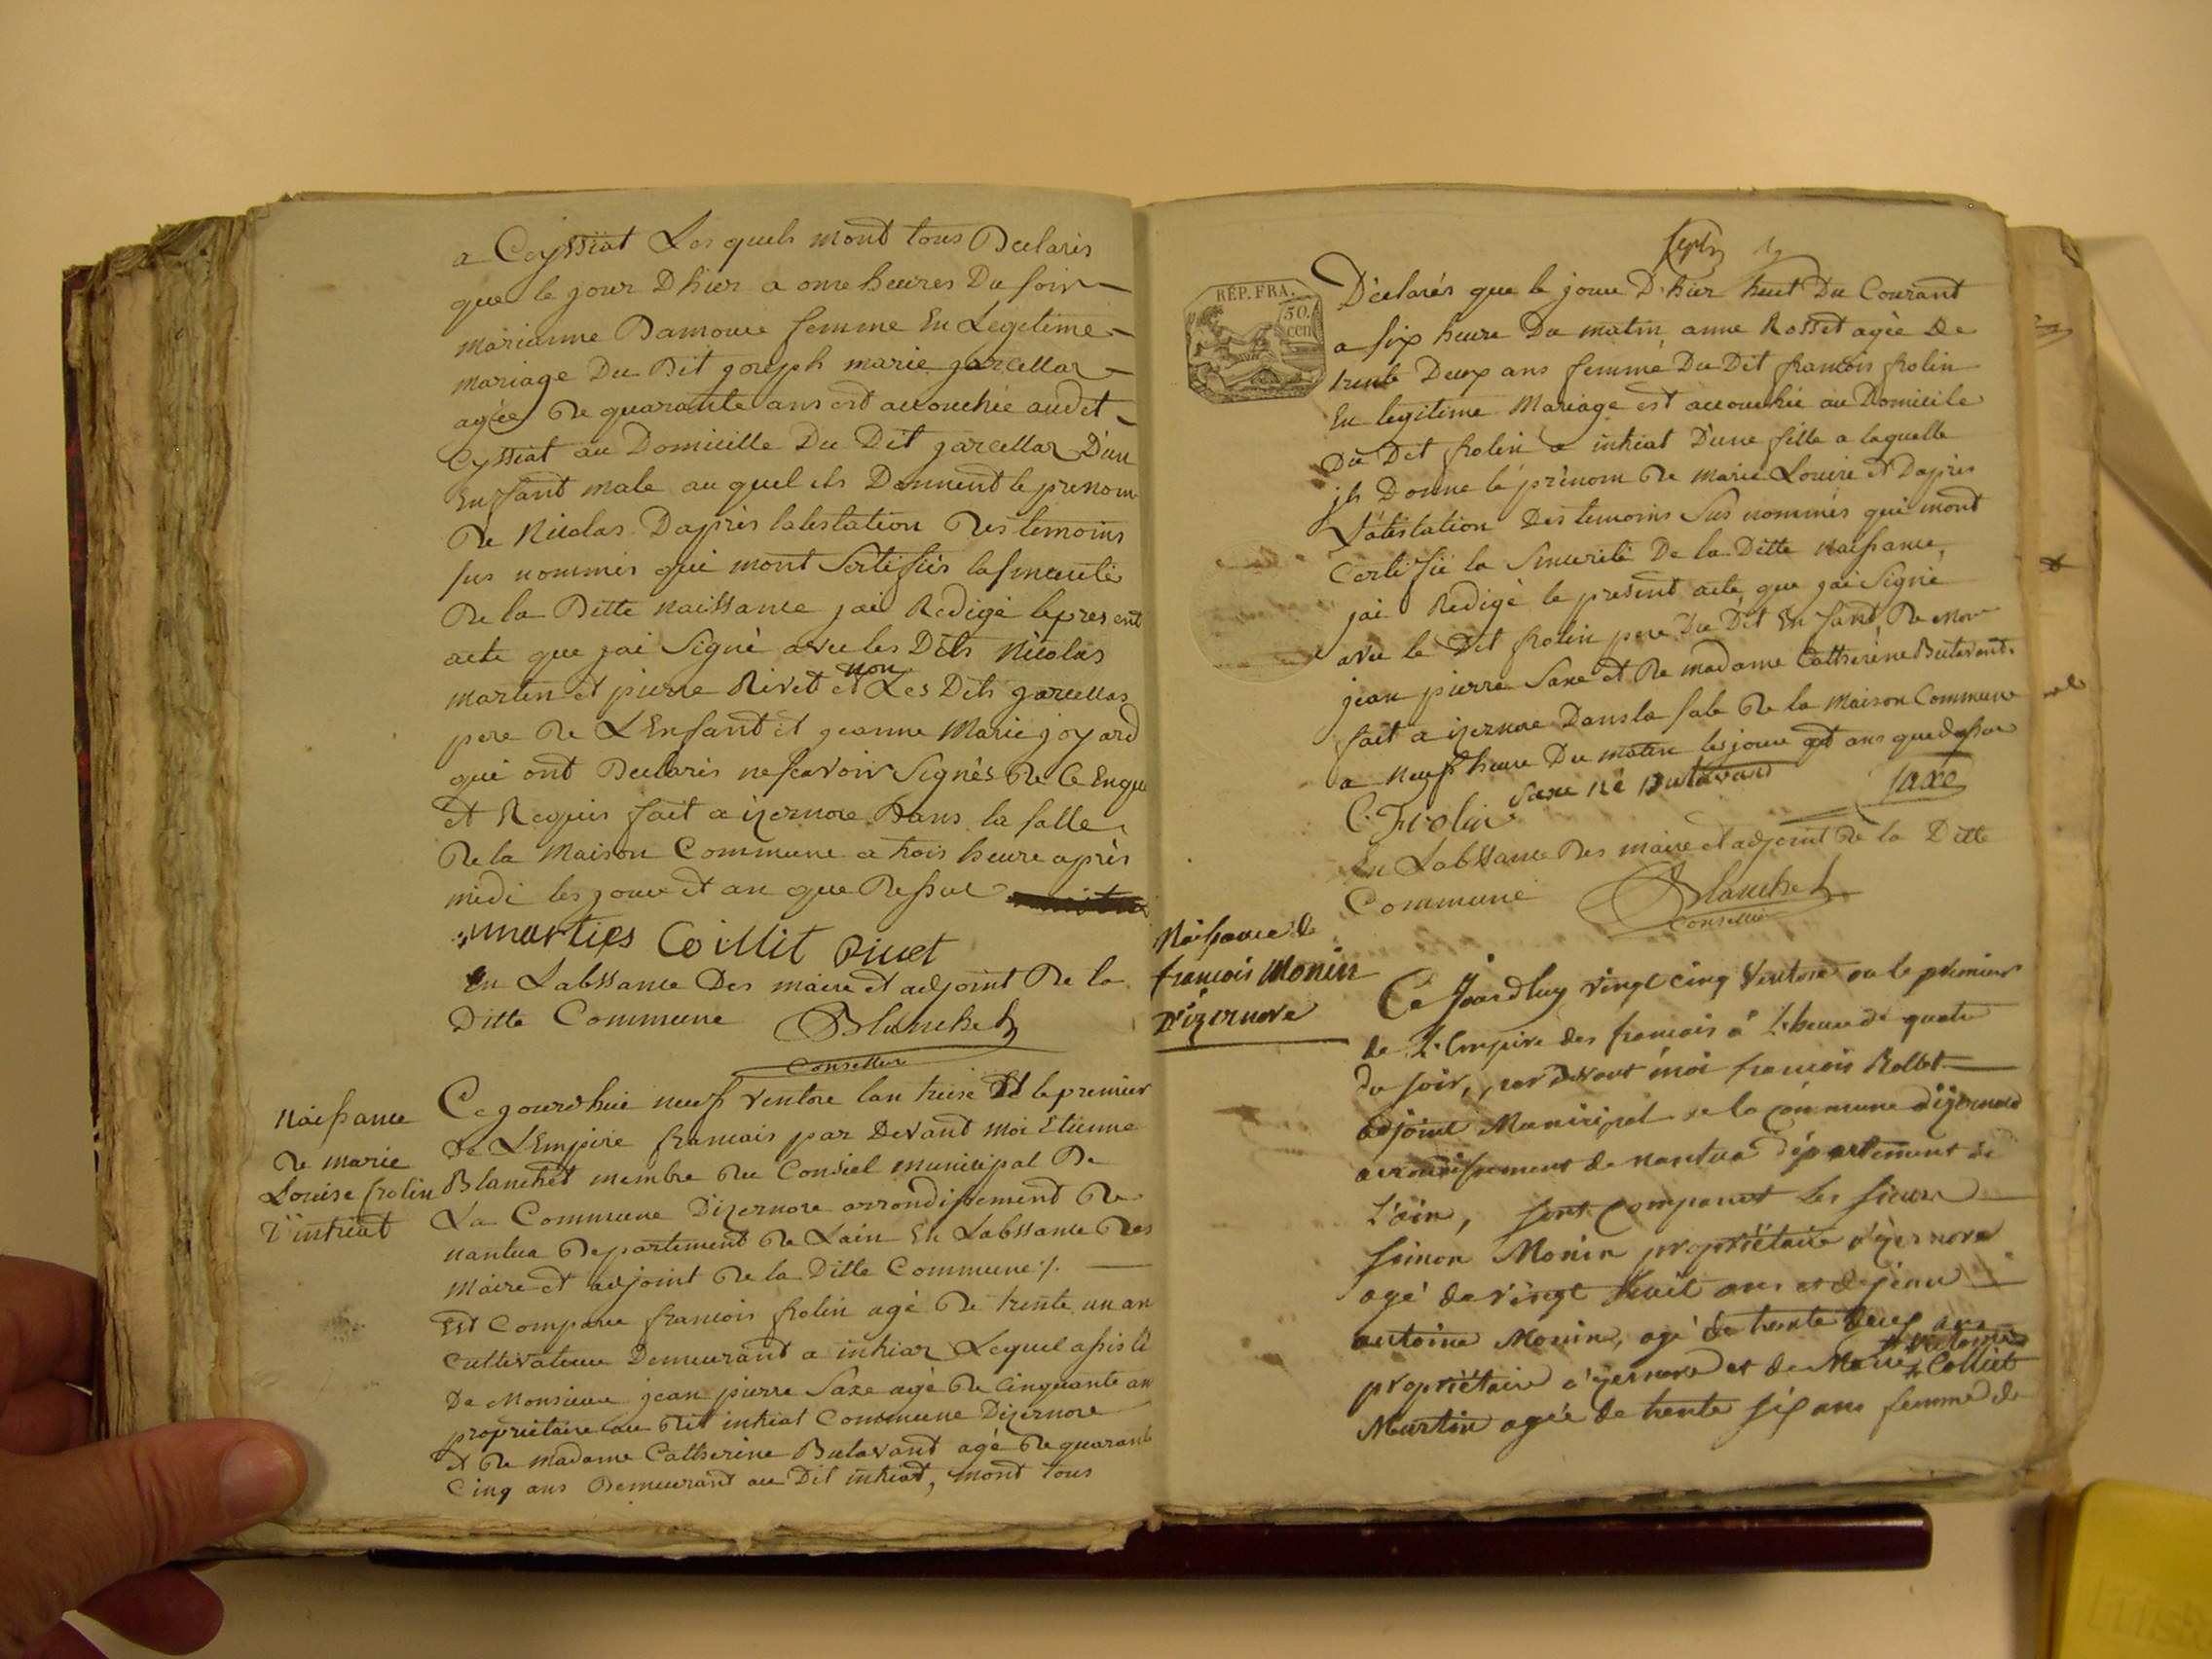 a Ceyssiat Les quels mont tous Declarés
que le jour D hier a onze heures Du soir
marianne Damoure femme En Legetime
mariage Du Dit joseph marie garcellas
agée De quarante ans est accouchée audet
Cyssiat au Domicille Du Dit garcellas D'un
Enfant male au quel ils Donnent le prenom
De Nicolas Daprès latestation Des temoins
sus nommés qui mont Sertifiés la sincerité
De la Ditte naissance jai Redigé le present
acte que jai Signé avec les Dits Nicolas
non
martin et pierre Rivet et Les Dits garcellas
pere De L'Enfant et jeanne Marie joyard
qui ont Declarés ne scavoir Signés De Ce Enqu
et Requis fait a izernore Dans la salle
De la Maison Commune a trois heure après
midi les jour et an que Dessus
Coillit Rivet
En Labssance Des maire et adjoint De la
Ditte Commune Blanchet
Conseiller
Naissance
De marie
Louise frolin
D'intriat
Ce jourdhui neuf ventose lan treise Et le premier
De L'Empire francais par Devant moi Etienne
Blanchet membre Du Consiel municipal De
La Commune Dizernore arrondissement De
nantua Departement De Lain En Labssance Des
Maire et adjoint De la Ditte Commune ./.
Est Compare francois frolin agé De trente un an
Cultivateur Demeurant a intriat Lequel assisté
De Monsieur jean pierre Saxe agé De Cinquante an
propriétaire au Dit intriat Commune Dizernore
et De madame Catherine Butavant agé De quarante
Cinq ans Demeurant au Dit intriat, mont tous
RÉP. FRA.
50.
cen
Déclarés que le jour D'hier huit Du Courant
a six heure Du matin, anne Rosset agée De
trente Deux ans femme Du Dit francois frolin
En legitime Mariage est accouchée au Domicile
Du Dit frolin a intriat D'une fille a laquelle
ils Donne le prénom De marie Louise et Dapres
L'atestation Des temoins Sus nommés qui mont
Certifié la Sincerité De la Ditte Naissance,
jai Redigé le present acte, que jai Signé
avec le Dit frolin pere Du Dit Enfant, De Mon
jean pierre Saxe et De madame Catherine Butavant.
fait a izernore Dans la sale De la Maison Commune
a neuf heure Du matin les jour et ans que dessus
C. Frolin Saxe né Butavand Saxe
En Labssance Des maire et adjoint De la Ditte
Commune Blanchet
Conseiller
Naissance de
francois Monin
D'izernore
Ce Jourdhuy vingt cinq Ventose an le premier
de L'Empire des francois à L'heure de quatre
du soir, par devant moi francois Rollet
adjoint Municipal de la Commune dizernore
arrondissement de nantua département de
L'ain, sont Comparut les sieurs
Simon Monin propriétaire d'izernore
agé de vingt huit ans et de jean
antoine Monin, agé de trente deux ans
propriétaire d'izernore et de Marie Colliet
Martin agée de trente six ans femme de